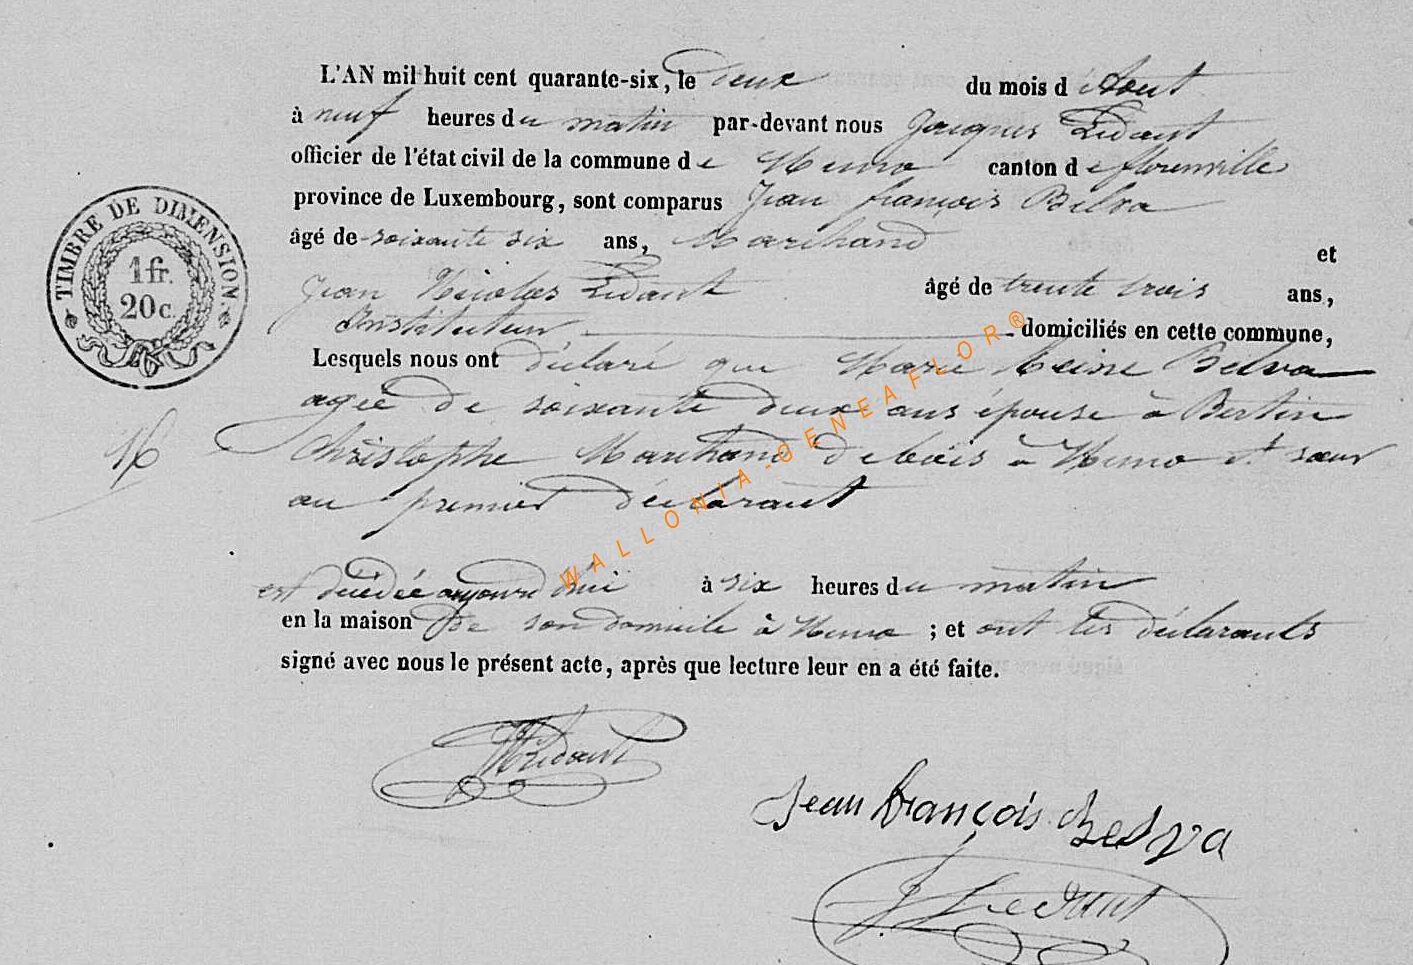 L'AN mil huit cent quarante-six, le deux du mois d'Aout
à neuf heures du matin par-devant nous Jacques Lidant
officier de l'état civil de la commune de Muno canton de florenville
province de Luxembourg, sont comparus Jean françois Belva
âgé de soixante six ans, Marchand et
Jean Nicolas Lidant âgé de trente trois ans,
Instituteur domiciliés en cette commune,
Lesquels nous ont déclaré que Marie Belva
agée de soixante deux ans épouse à Bertin
Christophe Marchand de bois à Muno et sœur
au premier déclarant
est décédée aujourd'hui à six heures du matin
en la maison de son domicile à Muno ; et ont les déclarants
signé avec nous le présent acte, après que lecture leur en a été faite.
TIMBRE DE DIMENSION.
1 fr.
20 c.
16
Lidant
Jean François Belva
J Lidant
WALLONIA-GENEAFLOR®